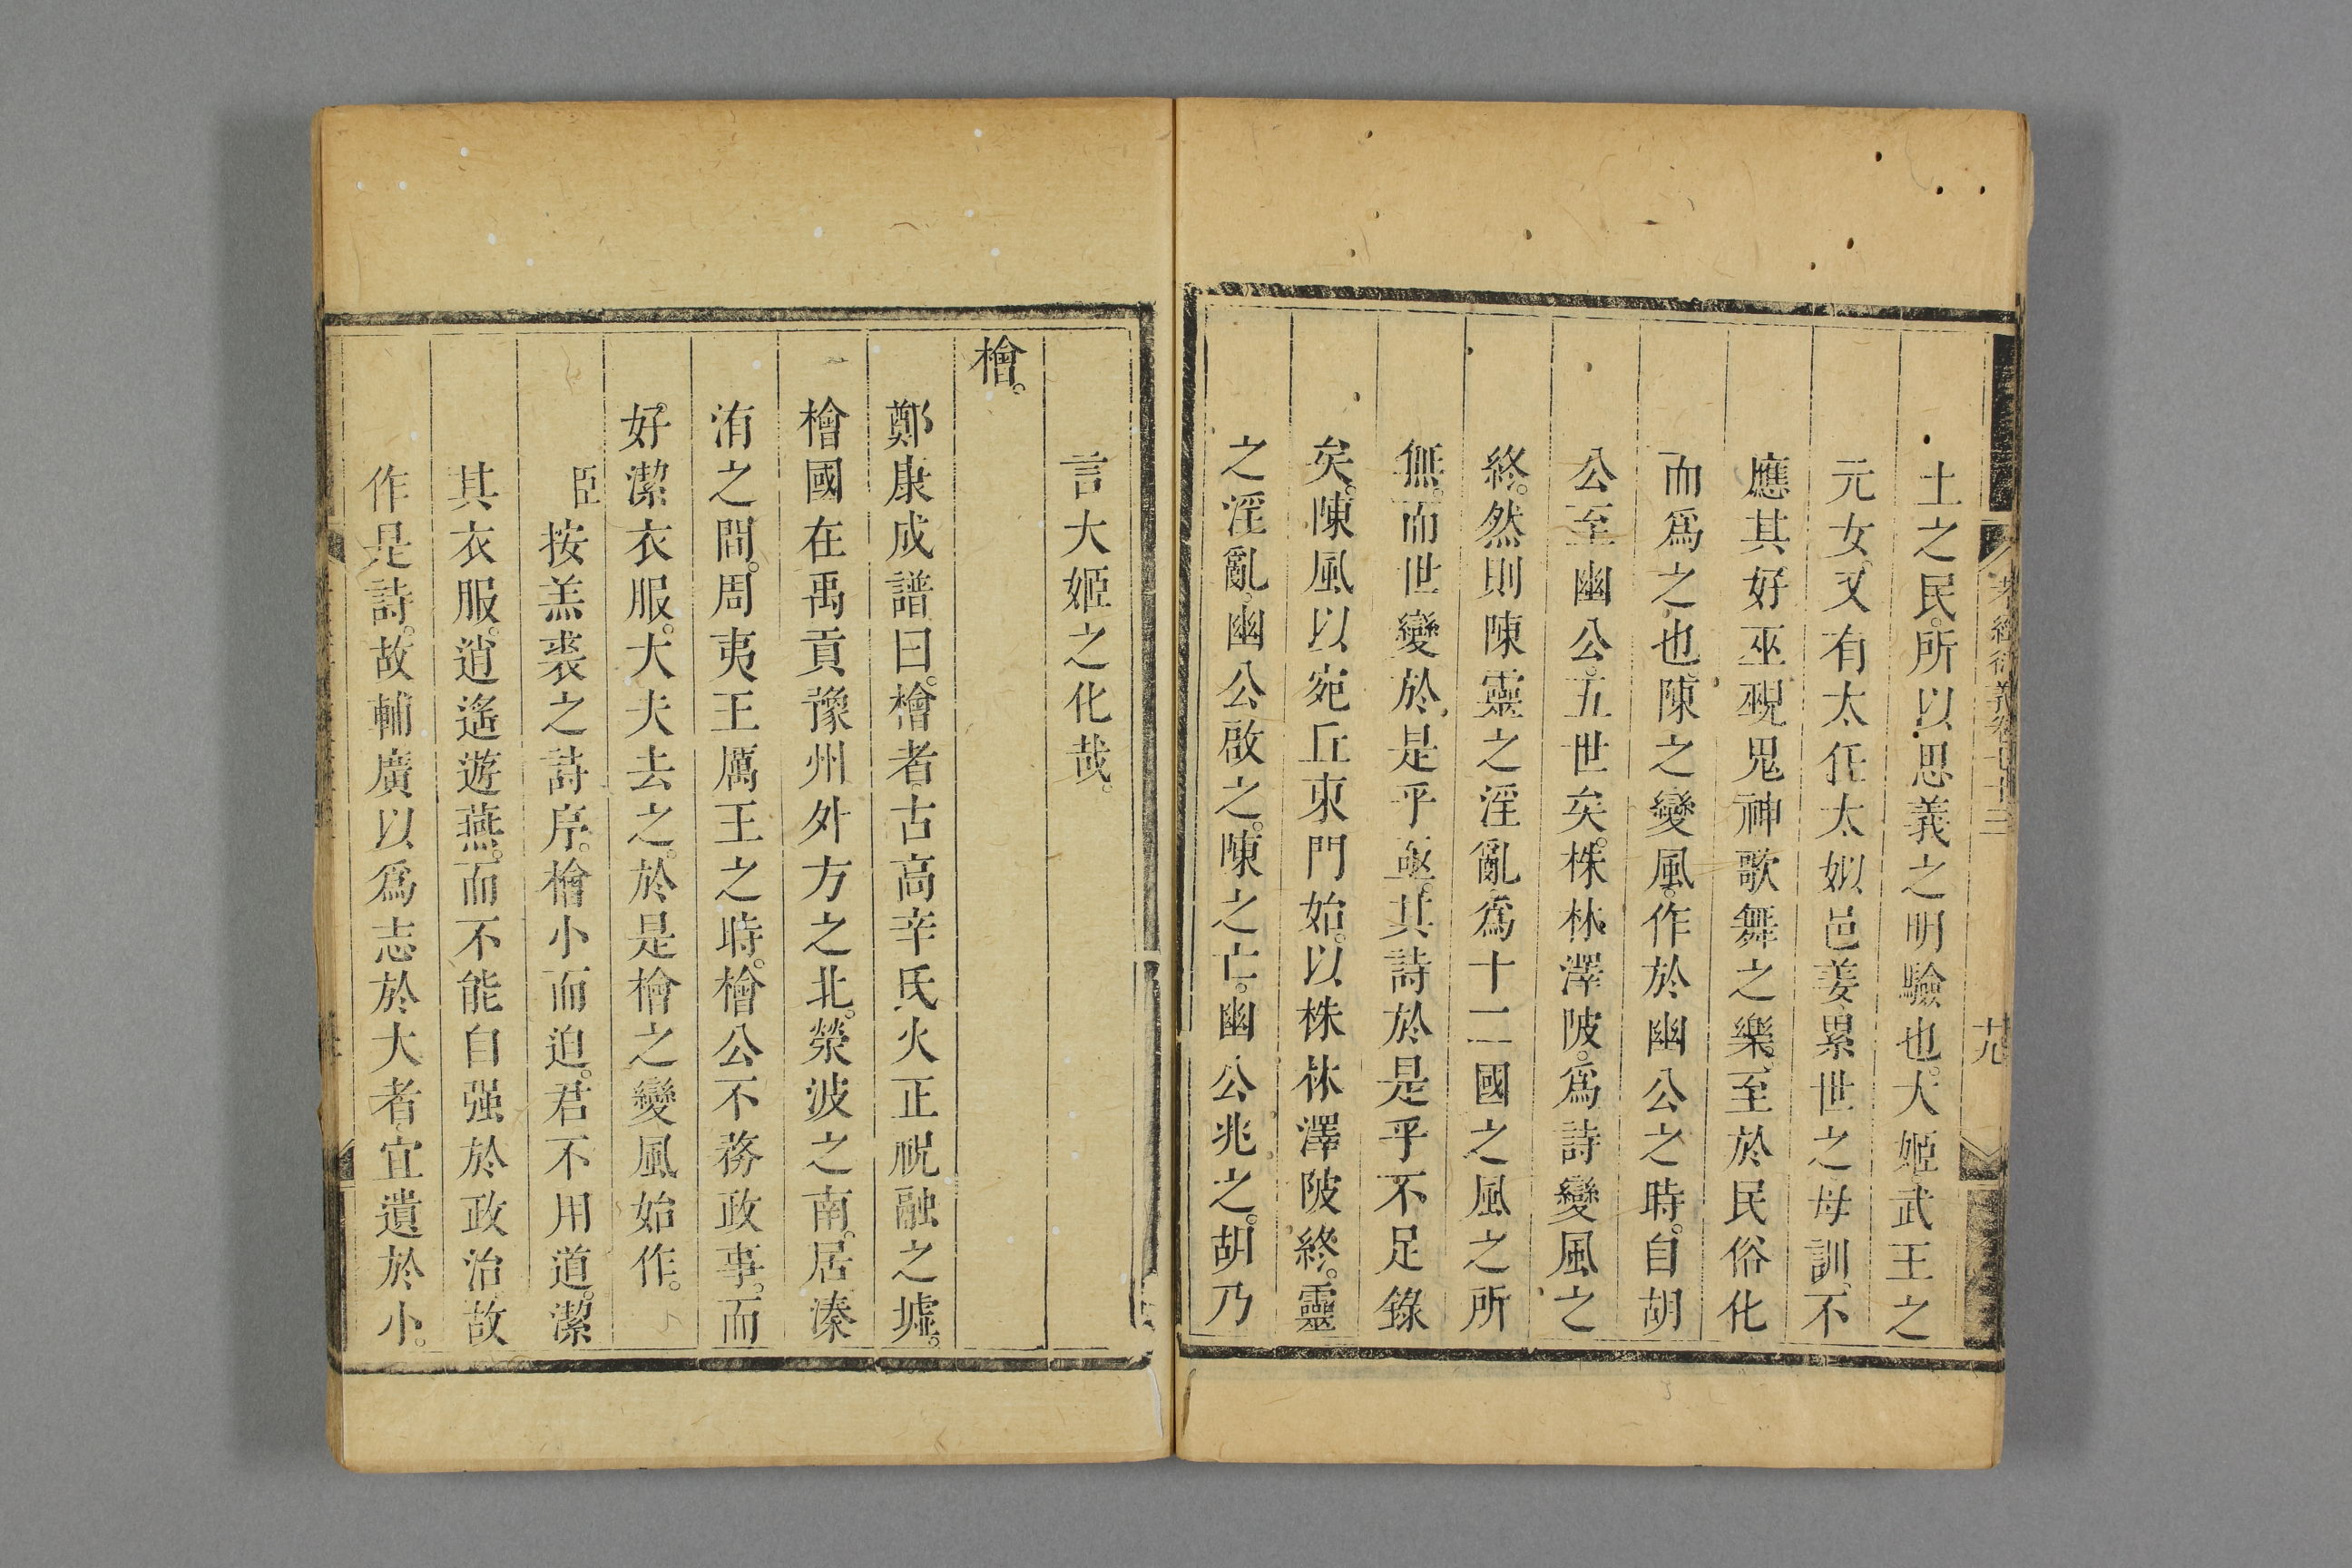 孝經衍義卷七十三　九
土之民。所以思義之明驗也。大姬武王之
元女、又有太任太姒邑姜、累世之母訓。不
應其好巫覡鬼神歌舞之樂。至於民俗化
而爲之也。陳之變風。作於幽公之時。自胡
公至幽公。五世矣。株林澤陂。爲詩變風之
終。然則陳靈之淫亂。爲十二國之風之所
無。而世變於是乎亟。其詩於是乎不足錄
矣。陳風以宛丘東門始。以株林澤陂終。靈
之淫亂。幽公啟之。陳之亡。幽公兆之。胡乃
言大姬之化哉。
檜。
鄭康成譜曰。檜者、古高辛氏火正祝融之墟。
檜國在禹貢豫州外方之北。滎波之南。居溱
洧之間。周夷王厲王之時。檜公不務政事。而
好潔衣服。大夫去之。於是檜之變風始作。
臣按羔裘之詩序。檜小而迫。君不用道。潔
其衣服。逍遙遊燕。而不能自强於政治。故
作是詩。故輔廣以爲志於大者、宜遺於小。